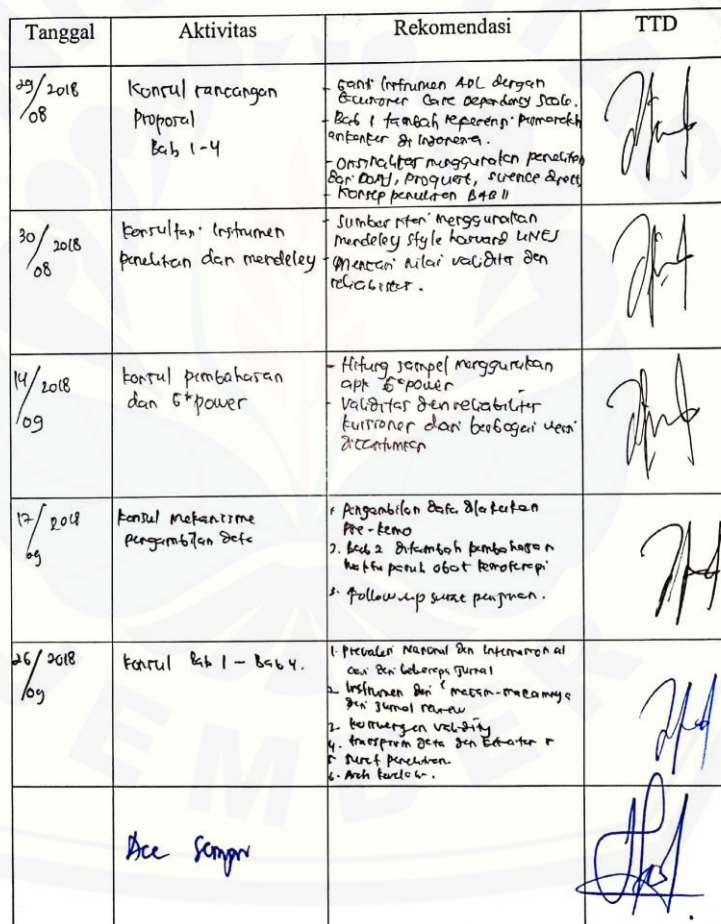 Tanggal Aktivitas Rekomendasi TTD
29/08 2018
Konsul rancangan
Proposal
Bab 1-4
- Ganti Instrumen ADL dengan
Care Dependency Scale.
- Bab 1 tambah referensi
di Indonesia.
- Originalitas menggunakan penelitian
dari DOAJ, Proquest, science direct
- Konsep penelitian BAB II
30/08 2018
Konsultasi Instrumen
penelitian dan mendeley
- Sumber menggunakan
mendeley style harvard UNEJ
- Mencari nilai validitas dan
reliabilitas.
14/09 2018
Konsul pembahasan
dan G*power
- Hitung sampel menggunakan
apk G*power
- Validitas dan reliabilitas
kuisioner dari berbagai versi
dicantumkan
17/09 2018
Konsul mekanisme
pengambilan data
1. Pengambilan data dilakukan
Pre-kemo
2. Bab 2 ditambah pembahasan
waktu paruh obat kemoterapi
3. Follow up surat perijinan.
26/09 2018
Konsul Bab 1 - Bab 4.
1. Prevalensi Nasional dan Internasional
dari beberapa Jurnal
2. Instrumen dan macam-macamnya
dari Jurnal review
3. Konvergen validity
4. data dan
5. Surat penelitian
Acc Sempro
JEMBER